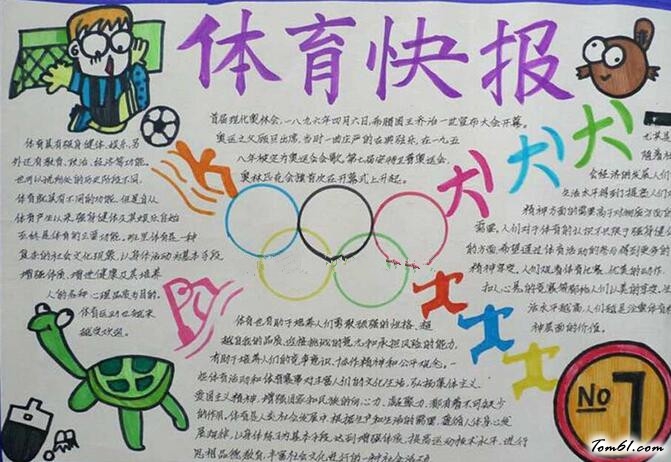 体育快报
首届现代奥林会,一八九六年四月六日,希腊国王乔治一世宣布大会开幕。
奥运之父顾贝出席,当时一曲庄严的古典弦乐,在一九五
八年被定为奥运会会歌,第七届安特卫普奥运会,
奥林匹克会旗首次在开幕式上升起。
体育具有强身健体、娱乐,另
外还有教育、政治、经济等功能。
不同,
体育既具有不同的功能,但是自从
体育产生以来,强身健体及其娱乐自始
至终是体育的主要功能。
复杂的社会文化现象,以身体活动为基本手段,
增强体质、增进健康及其培养
人的各种心理品质为目的。
体育运动也越来
越受欢迎。
尤其是
随着
社会经济的发展,人们
生活水平得到了提高,人们
精神方面的需要高于对物质方面
需要,人们对于体育的认识不仅限于强身健
的方面,希望通过体育活动的参与得到更多的
精神享受,人们观看体育比赛,优美的动作,
和扣人心悬的竞赛
活水平越高,人们越是注重体育
神层面的价值。
体育也有助于培养人们勇敢顽强的性格、超
越自我的品质、迎接挑战的意志和承担风险的能力,
有助于培养人们的竞争意识、协作精神和公平观念。一
些体育活动和体育赛事对丰富人们的文化生活,弘扬集体主义、
爱国主义精神,增强国家和民族的向心力、凝聚力,都有着不可缺少
的作用。体育是人类社会发展中,根据生产和生活的需要,遵循人体身心发
展规律,以身体练习为基本手段,达到增强体质,提高运动技术水平,进行
思想品德教育,丰富社会文化生活而进行的一种社会活动
No 1
Tom61.com